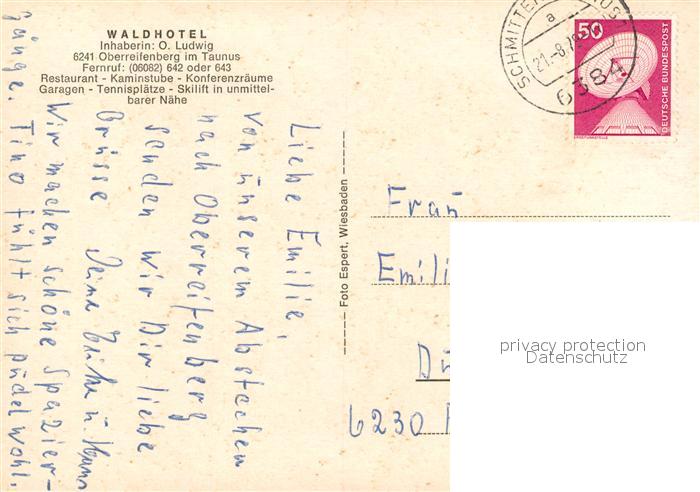 WALDHOTEL
Inhaberin: O. Ludwig
6241 Oberreifenberg im Taunus
Fernruf: (06082) 642 oder 643
Restaurant - Kaminstube - Konferenzräume
Garagen - Tennisplätze - Skilift in unmittel-
barer Nähe
Liebe Emilie,
von unserem Abstecher
nach Oberreifenberg
senden wir Dir liebe
Grüsse Deine
u. Hans
Wir machen schöne Spazier-
gänge. Tino fühlt sich pudelwohl.
Foto Espert, Wiesbaden
SCHMITTEN
a
21.-8.
6384
50
DEUTSCHE BUNDESPOST
Frau
Emili
6230
privacy protection
Datenschutz